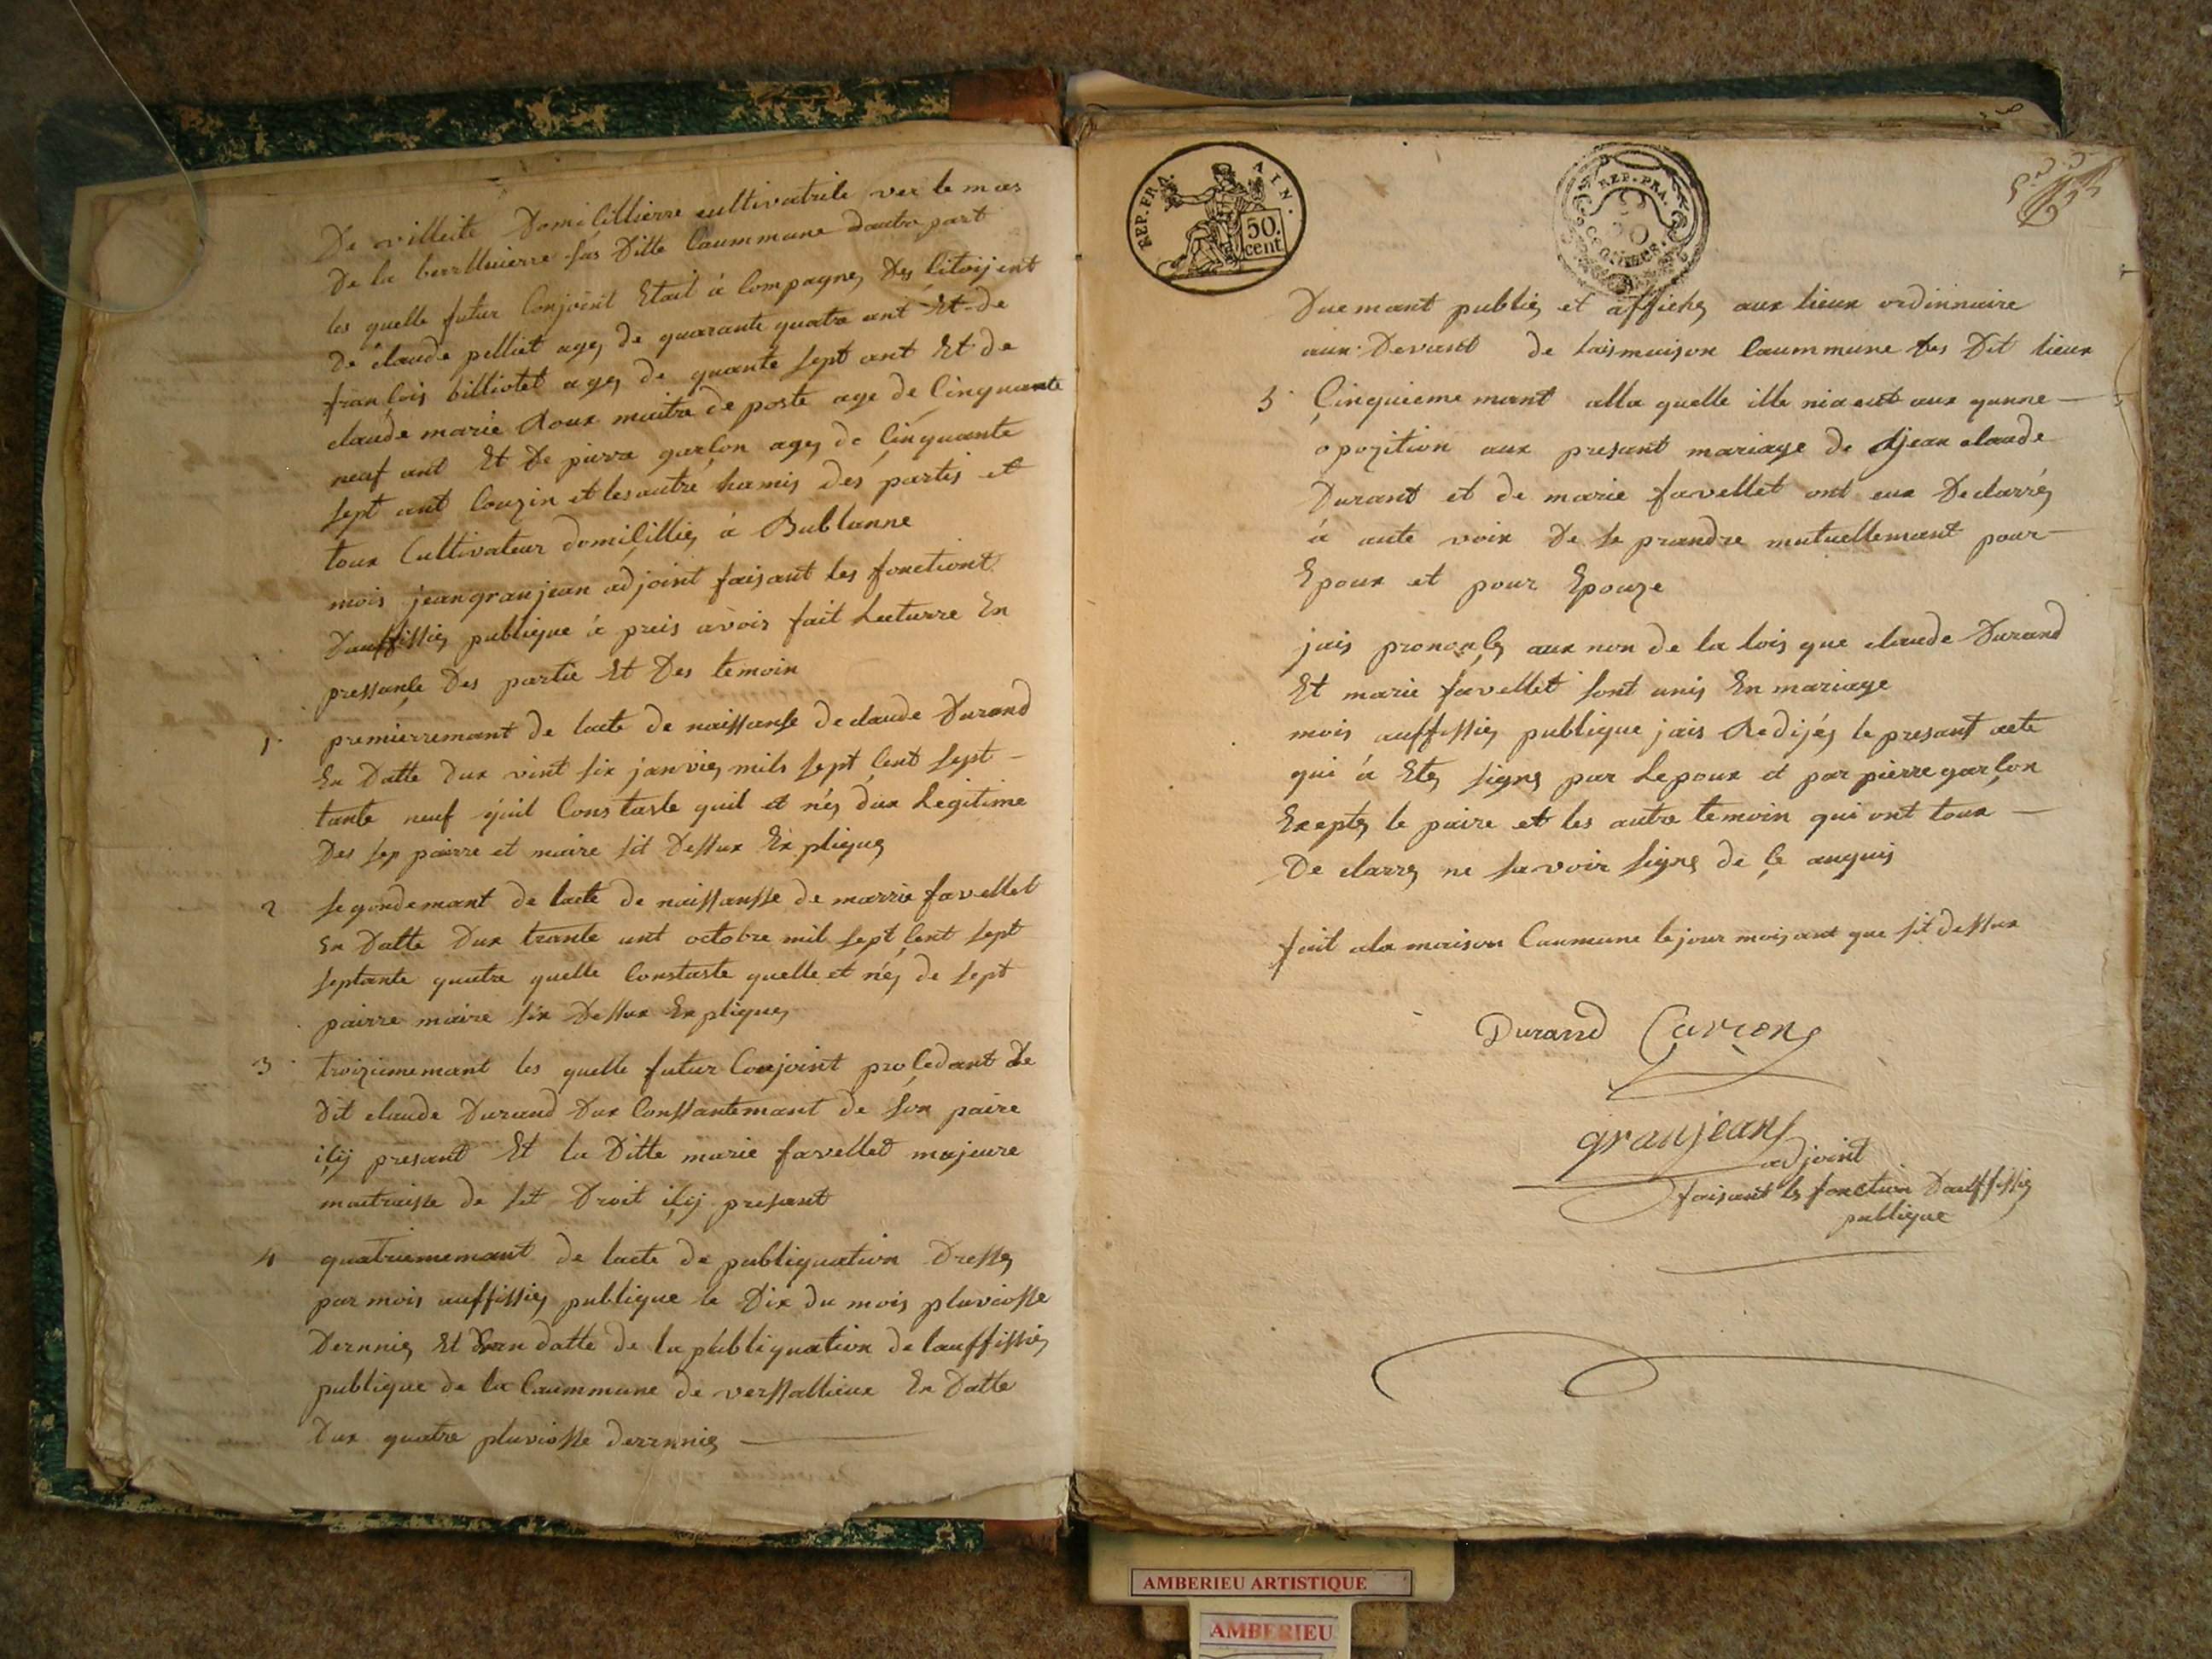 De villeite Domicilliere cultivatrile ver le mas
De la berrlluierre sus Ditte Caummune dautre part
les quelle futur Conjoint Etait à Compagnes Des Citoijent
De claude pelliet ages de quarante quatre ant Et de
françois billiotet ages de quante sept ant Et de
claude marie Roux maitre de poste age de Cinquante
neuf ant Et De pierre garçon ages de Cinquante
sept ant Couzin et les autre hamis des partis et
toux Cultivateur domicillies à Bublanne
mois jean granjean adjoint faisant les fonctiont
Dauffissies publique à preis avois fait Lecturre En
pressançe Des partie Et Des temoin
1 premierremant de lacte de naissanse de claude Durand
En Datte dux vint six janvies mils sept Çent sept
tante neuf quil Constaste quil et nés dux Legitime
Des sep pairre et maire sit Dessux Expliques
2 segondemant de lacte de naissansse de marrie favellet
En Datte Dux trante unt octobre mil sept Çent sept
septante quatre quelle Constaste quelle et nés de sept
pairre maire six Dessux Expliques
3 troiziememant les quelle futur Conjoint proçedant De
Dit claude Durand Dux Conssantemant de son paire
içij presant Et la Ditte marie favellet majeure
maitraisse de set Droit içij presant
4 quatriememant de lacte de publiquation Dresses
par mois auffissies publique le Dix du mois pluviosse
Dernnies Et datte de la publiquation de lauffissies
publique de la Caummune de verssallieux En Datte
Dux quatre pluviosse derrnnies
REP. FRA. AIN. 50. cent
REP. FRA.
Duemant publies et affiches aux lieux ordinnaire
aux Devant de lais maison Caummune des Dit lieux
5 Çinquieme mant alla quelle ille niaeut aux qunne
opozition aux presant mariage de jean claude
Durant et de marie favellet ont eux Declarrés
à aute voix De se prandre mutuellemant pour
Epoux et pour Epouze
jais prononçes aux non de la lois que claude Durand
Et marie favellet sont unis En mariage
mois auffissies publique jais Redijés le presant acte
qui à Etes signes par Lepoux et par pierre garçon
Exeptes le paire et les autre temoin qui ont toux
De clarres ne savoir signe de çe anquis
fait ala maison Caumune le jour mois ant que sit dessux
Durand Carron
granjean
adjoint
faisant les fonction Dauffissies
publique
AMBERIEU ARTISTIQUE
AMBERIEU